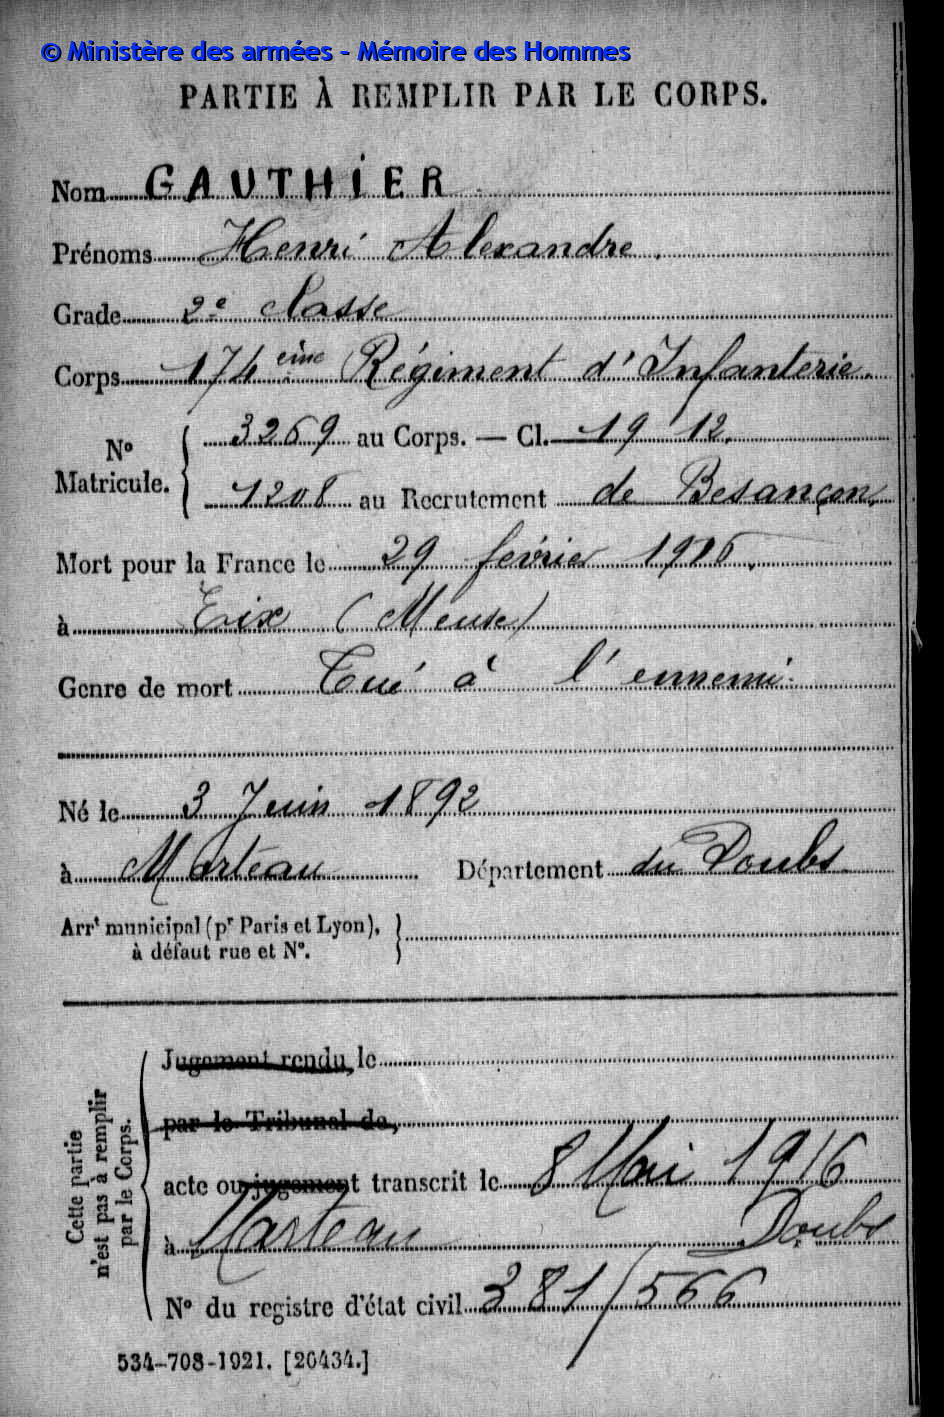 © Ministère des armées - Mémoire des Hommes
PARTIE À REMPLIR PAR LE CORPS.
Nom GAUTHIER
Prénoms Henri Alexandre.
Grade 2e classe
Corps 174 eme Régiment d'Infanterie.
N° Matricule. 3269 au Corps. — Cl. 1912.
1208 au Recrutement de Besançon.
Mort pour la France le 29 février 1916.
à Eix (Meuse)
Genre de mort Tué à l'ennemi.
Né le 3 Juin 1892
à Morteau Département du Doubs.
Arrt municipal (pr Paris et Lyon),
à défaut rue et N°.
Cette partie
n'est pas à remplir
par le Corps.
Jugement rendu, le
par le Tribunal de,
acte ou jugement transcrit le 8 Mai 1916
à Morteau Doubs
N° du registre d'état civil 381/566
534-708-1921. [26434.]